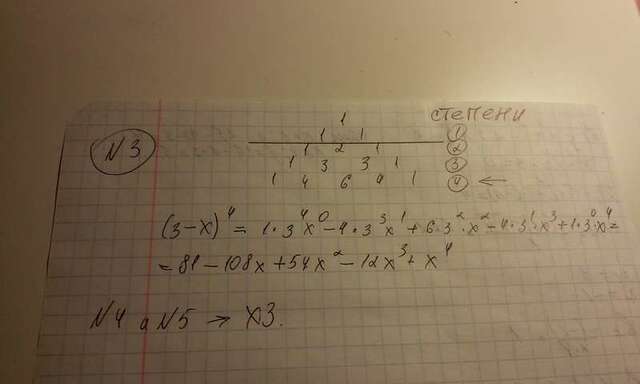 степени
1
1 1 1
1 2 1 2
N3 1 3 3 1 3
1 4 6 4 1 4 ←
(3-x)⁴ = 1·3⁴x⁰-4·3³x¹+6·3²·x²-4·3¹·x³+1·3⁰·x⁴=
=81-108x+54x²-12x³+x⁴
N4 и N5 → ХЗ.